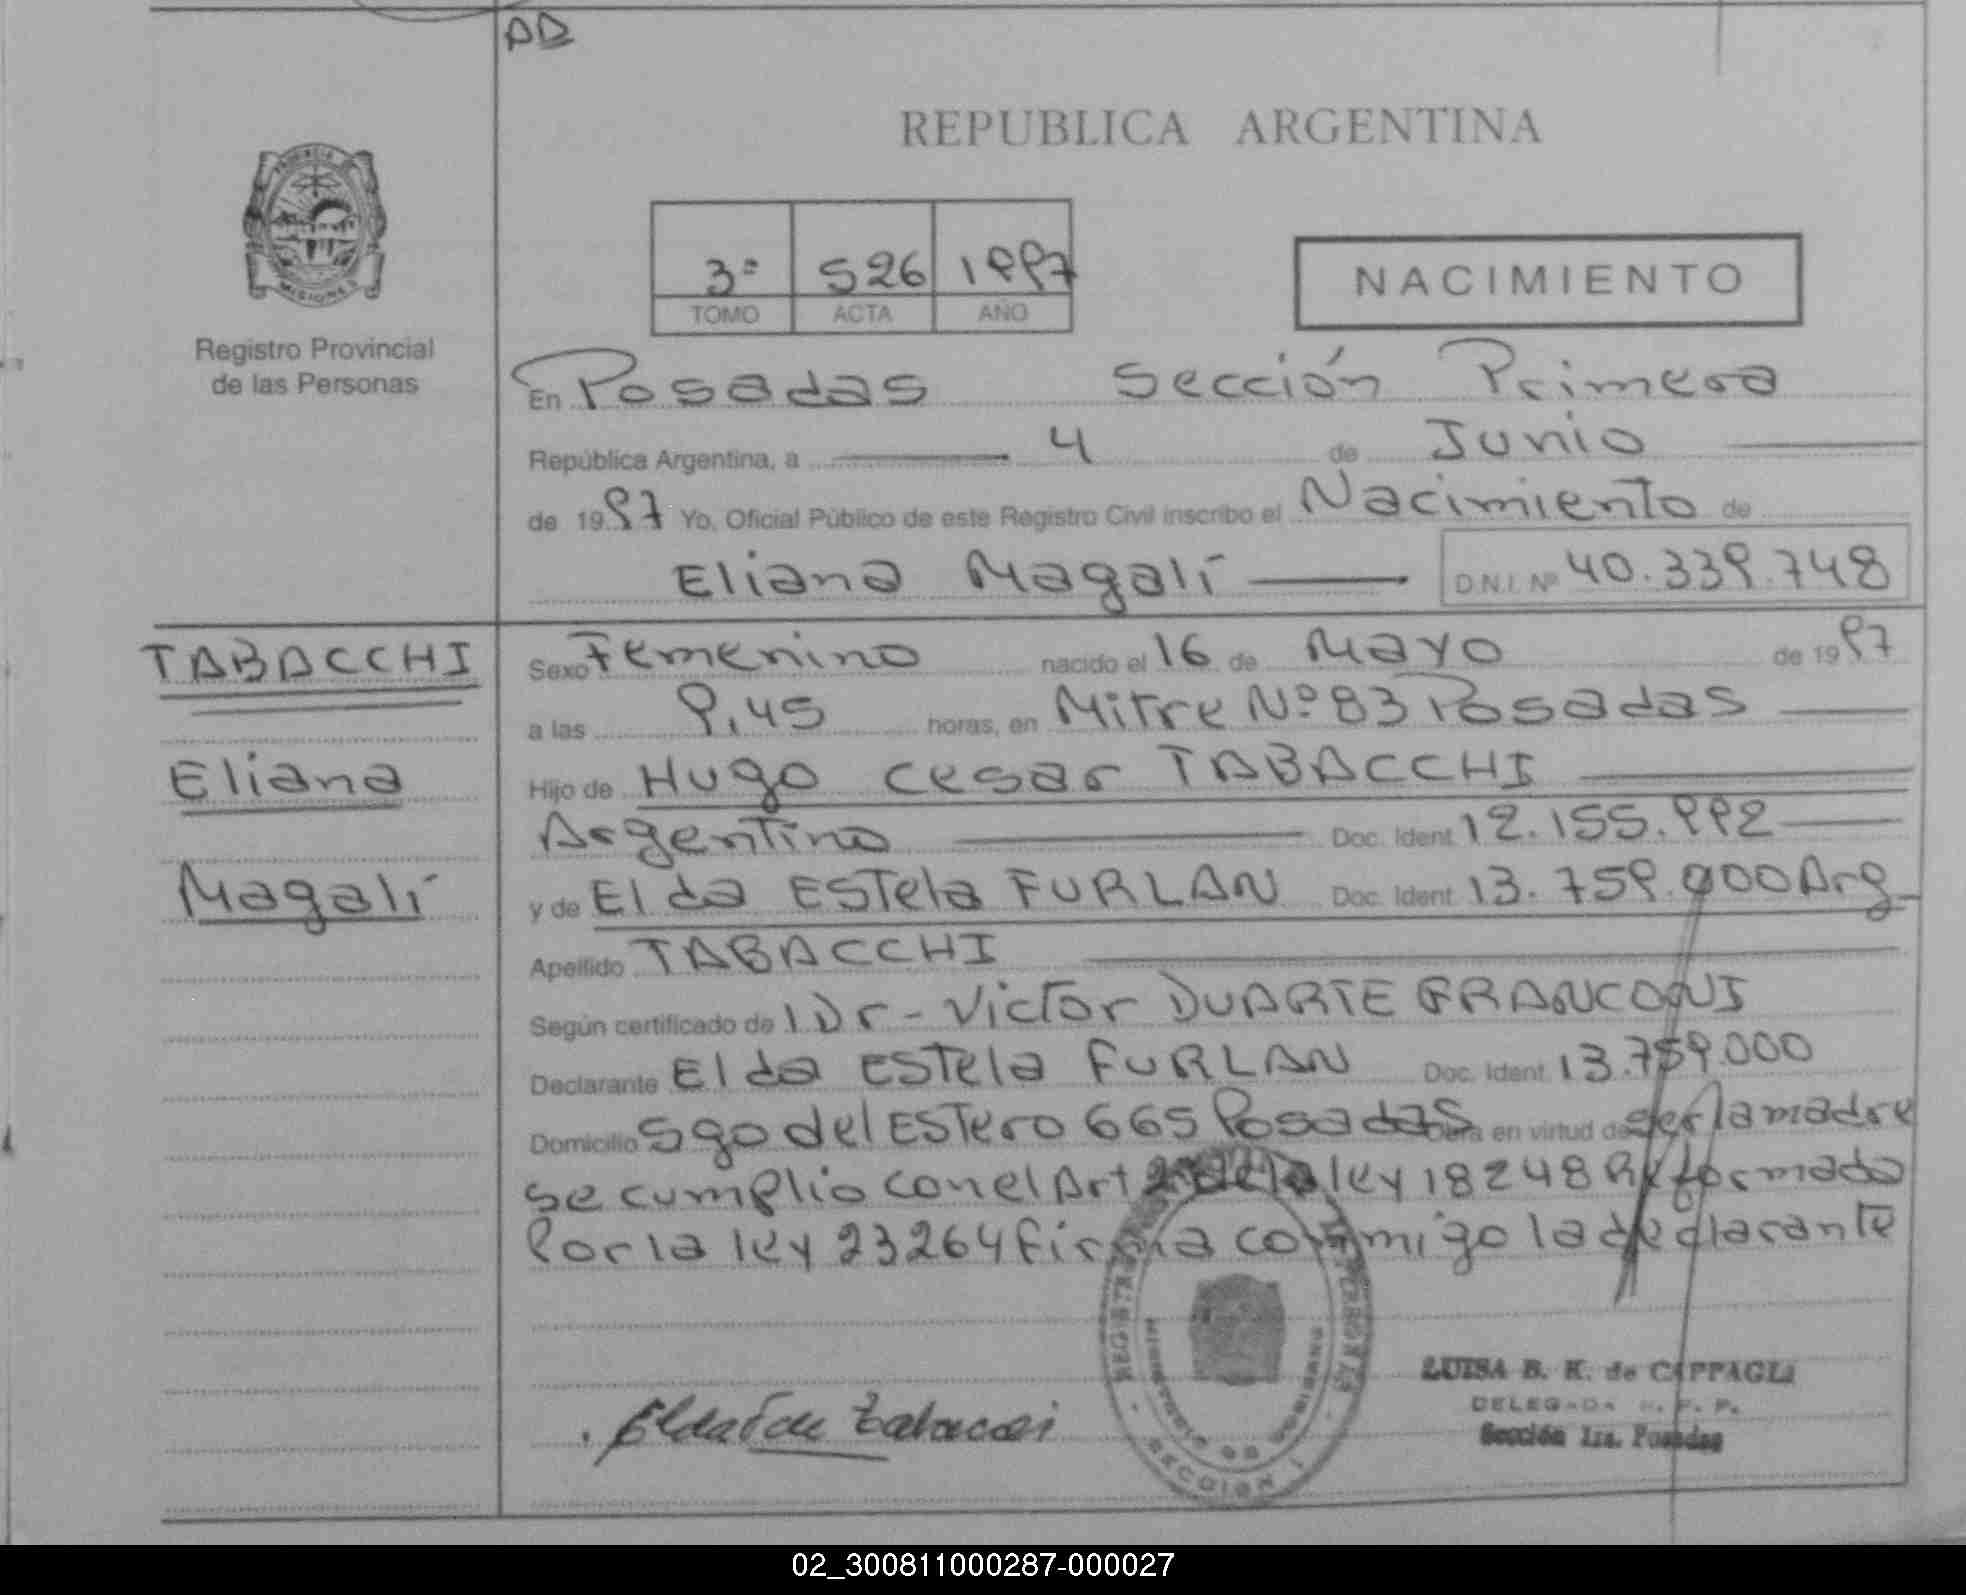 AD
REPUBLICA ARGENTINA
PROVINCIA
MISIONES
Registro Provincial
de las Personas
3º 526 1997
TOMO ACTA AÑO
NACIMIENTO
En Posadas Sección Primera
República Argentina, a 4 de Junio
de 1997 Yo, Oficial Público de este Registro Civil inscribo el Nacimiento de
Eliana Magalí D.N.I. Nº 40.339.748
TABACCHI
Eliana
Magalí
Sexo Femenino nacido el 16 de Mayo de 1997
a las 9,45 horas, en Mitre Nº 83 Posadas
Hijo de Hugo Cesar TABACCHI
Argentino Doc. Ident. 12.155.992
y de Elda Estela FURLAN Doc. Ident. 13.759.000 Arg
Apellido TABACCHI
Según certificado de Dr - Victor DUARTE FRANCONI
Declarante Elda Estela FURLAN Doc. Ident. 13.759.000
Domicilio Sgo del Estero 665 Posadas Obra en virtud de ser la madre
se cumplio con el Art de la ley 18248 Reformado
Por la ley 23264 firma conmigo la declarante
SECCION 1
LUISA B. K. de CAPPAGLI
DELEGADA R. P. P.
Sección 1ra. Posadas
02_300811000287-000027